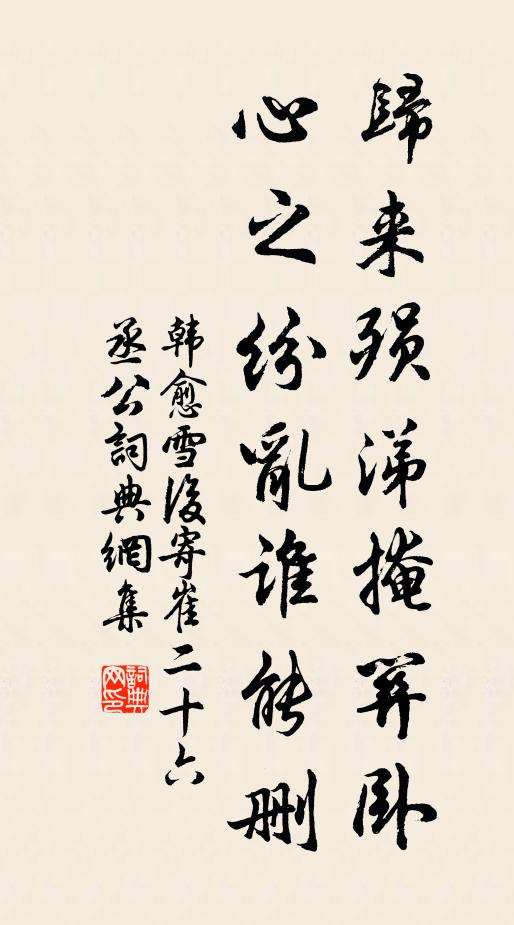 歸来殞涕掩關臥
心之紛亂誰能刪
韓愈雪後寄崔二十六
丞公詞典網集
詞典
网印